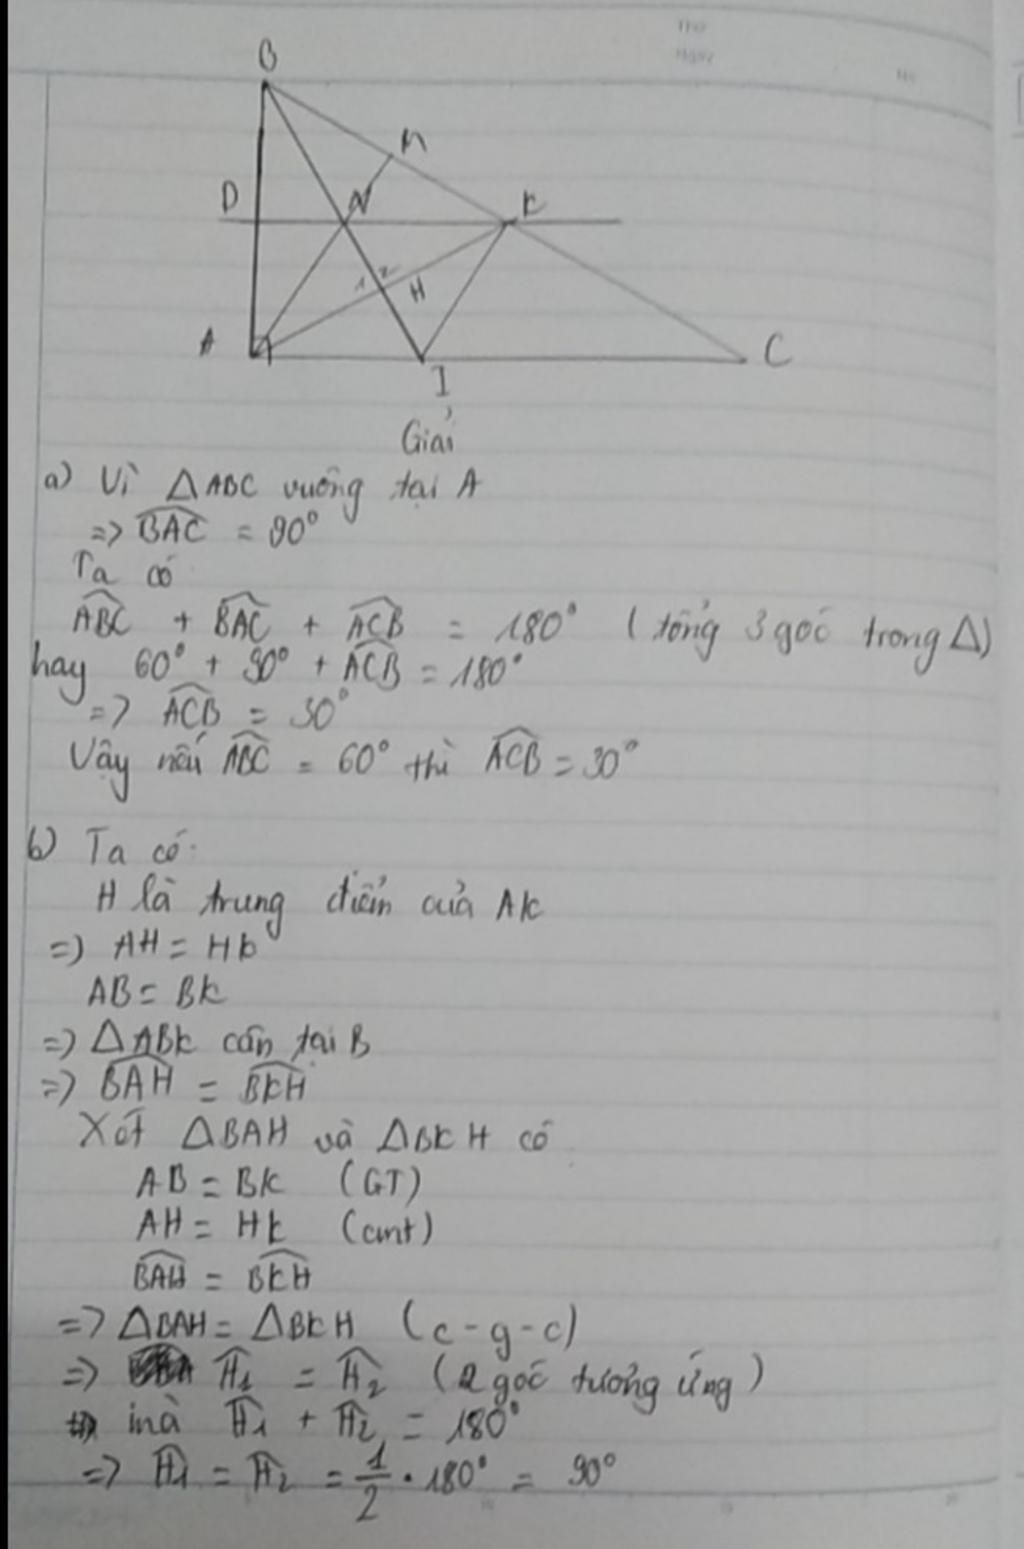 B
M
D
N
K
1 2
H
A
I
C
Giải
a) Vì △ABC vuông tại A
=> BAC = 90°
Ta có
ABC + BAC + ACB = 180° (tổng 3 góc trong △)
hay 60° + 90° + ACB = 180°
=> ACB = 30°
Vậy nếu ABC = 60° thì ACB = 30°
b) Ta có:
H là trung điểm của AK
=) AH = HK
AB = BK
=) △ABK cân tại B
=) BAH = BKH
Xét △BAH và △BKH có
AB = BK (GT)
AH = HK (cmt)
BAH = BKH
=> △BAH = △BKH (c-g-c)
=> H1 = H2 (2 góc tương ứng)
mà H1 + H2 = 180°
=> H1 = H2 = 1/2 . 180° = 90°